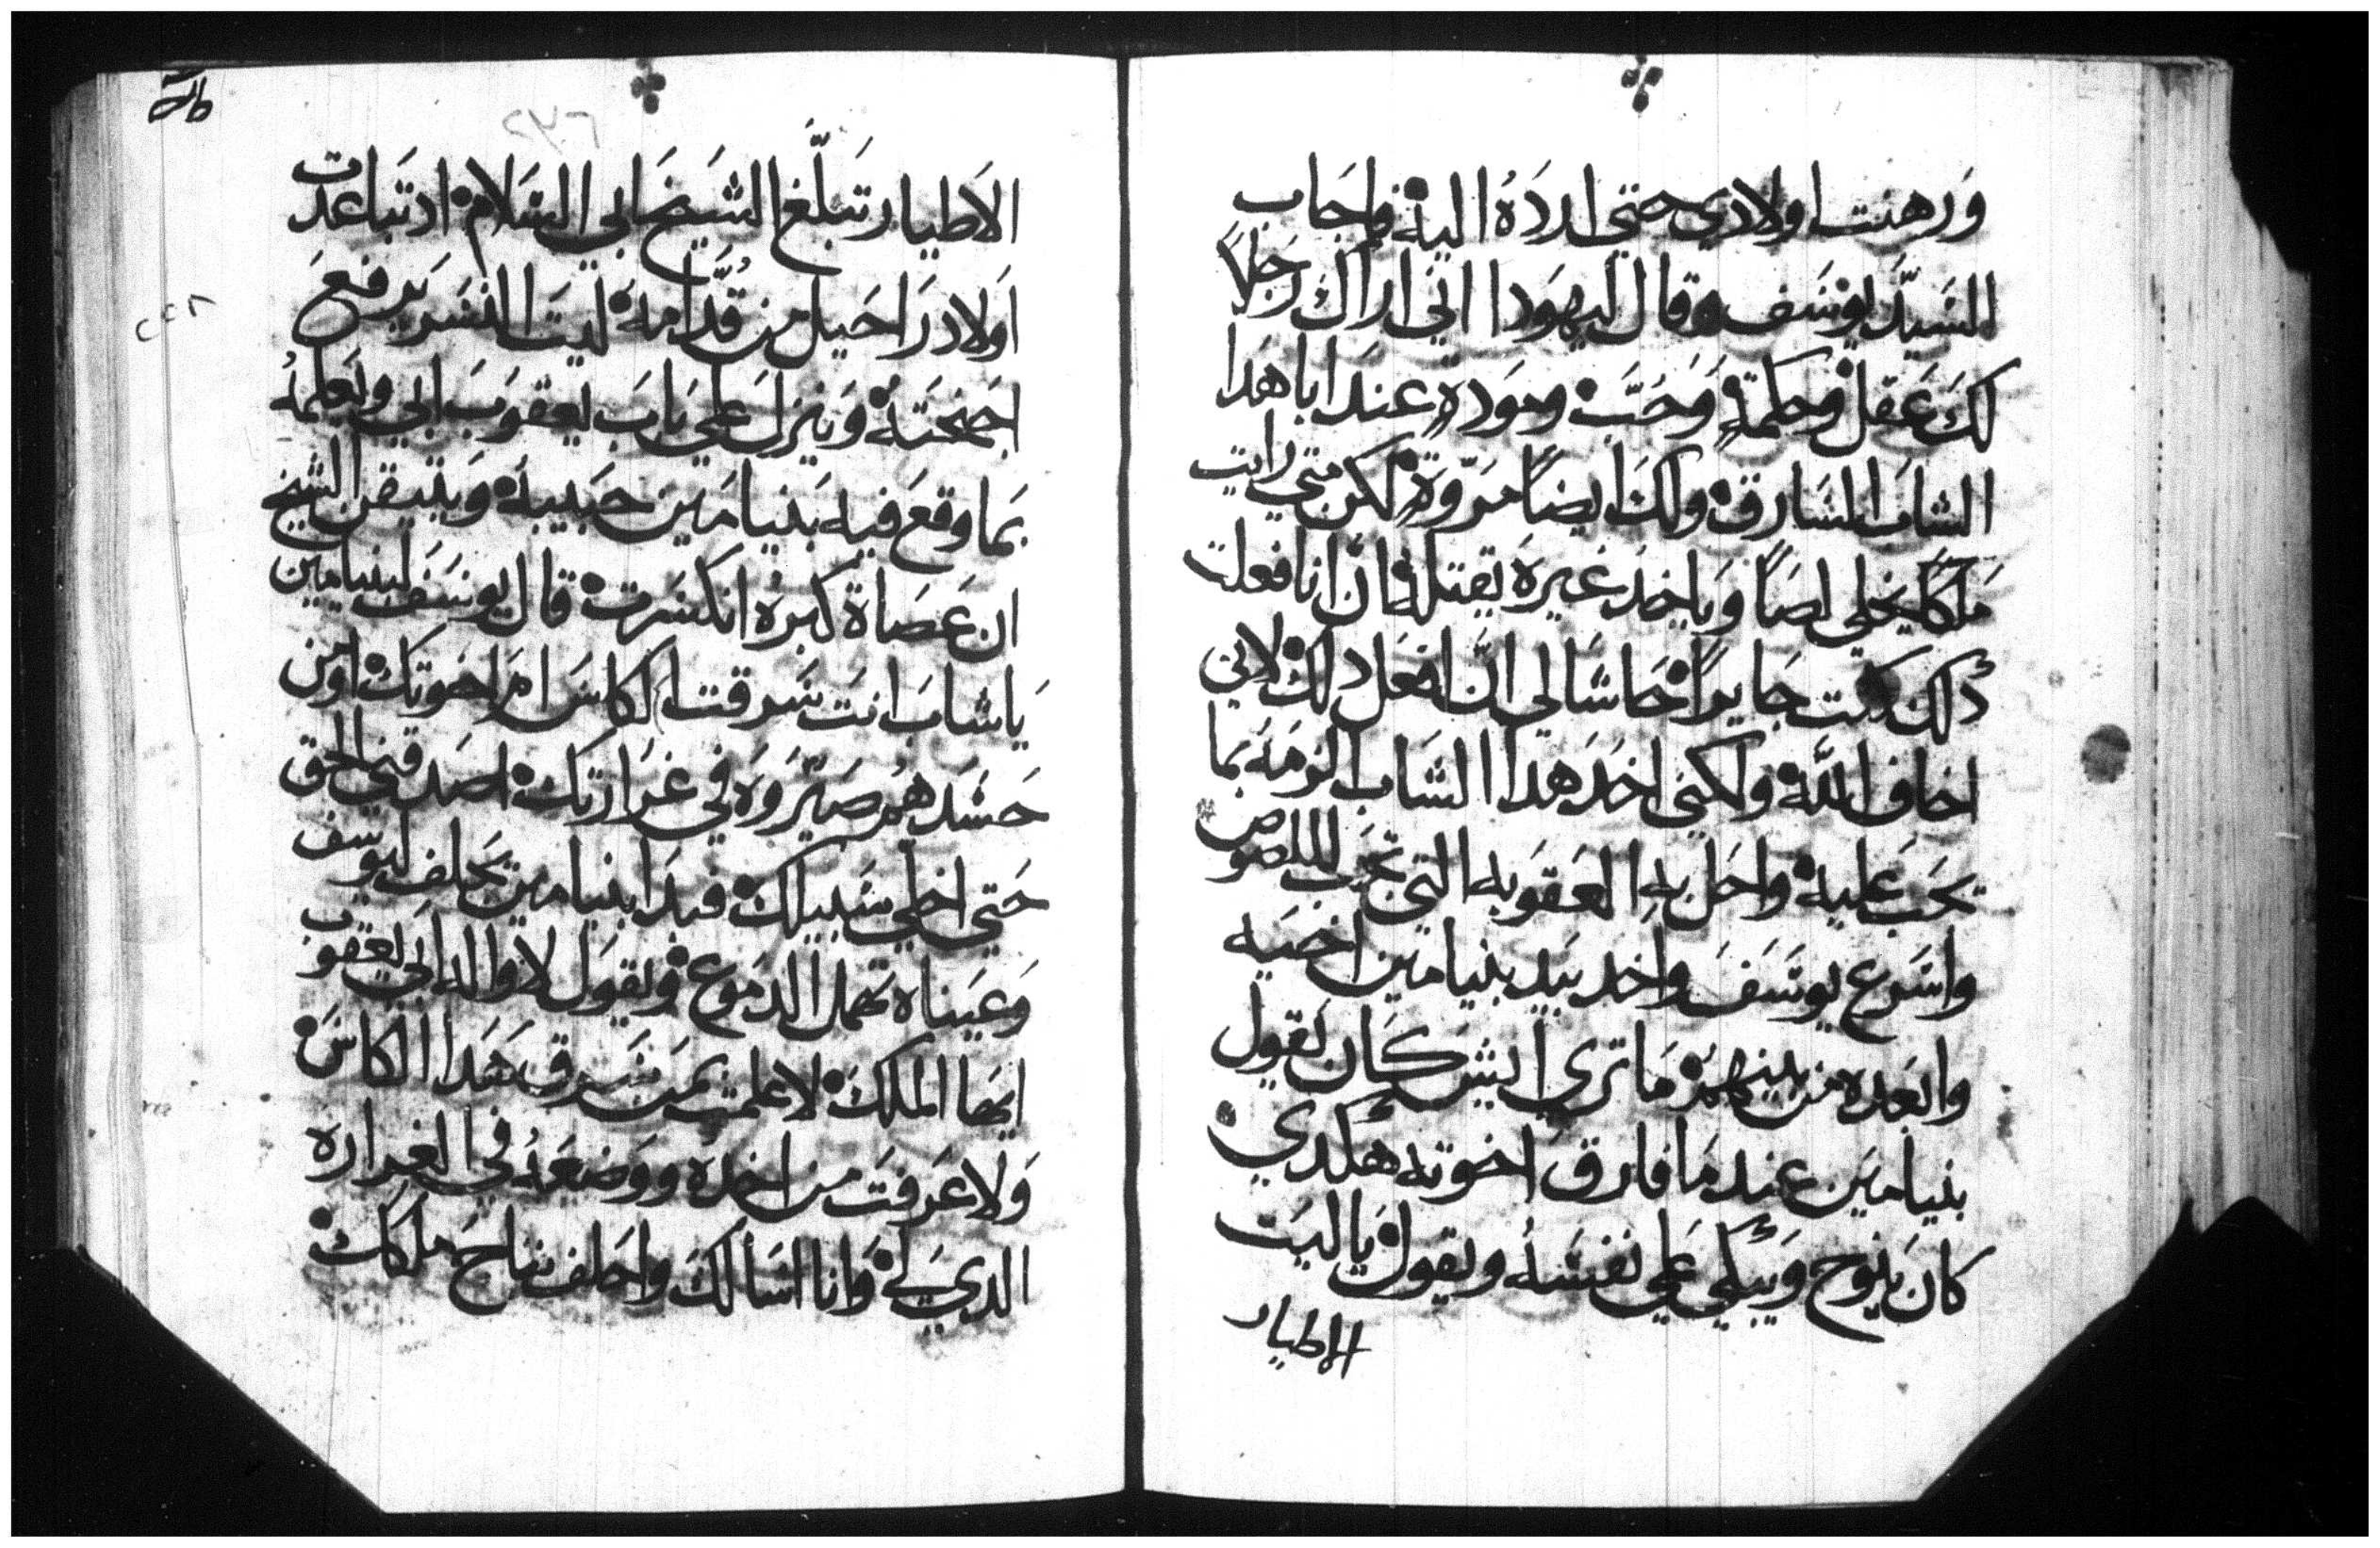 وَرهنت اولادي حتي اردَدَهُ اليهْ فاجَاب
السَيدَ يوسَف وقال ليهوَدا اني اراك رَجلاً
لكَ عَقل وحكمةٍ وَحَبَّ ومودةٍ عندَ ابا هدَا
الشابَ السَارق ولكَ ايضاً مرَوّةٍ لكن متي رايت
مَلكاً يخلي لصاً وَياخدَ غيرهَ يقتله فان انا فعلت
دلك كنت جَايراً حَاشا لي انّ افعَل دلك لاني
اخاف اللَّه ولكني اخدَ هدا الشَاب الزمَهَ بمَا
يجَب عَليه واحَل بهِ العَقوَبه التي تجَب للصوص
واسَرع يوسَفَ واخد بَيد بنيامَين اخيَه
وابعَده من بينهمْ مَا تري ايشَ كَان يَقول
بنيامَين عندمَا فارق اخوته هَكدي
كانَ يَنوح وَيبكي عَلي نفسَهُ ويقول يا ليَت
الاطيار
٢٣٦
الاَطيار تبَلّغ الشَيخ ابي السَلام اد تباعَدت
اَولاد رَاحَيل من قُدَّامهَ لَيتَ النسَر يرفعَ
اجنحتَهَ وَينزلَ عَلي بَابَ يعقوبَ ابي ويَعلمَهُ
بمَا وقعَ فيه بَنيامَين حبَيبَه وَيتيقن الشيخ
ان عَصَاة كبرهُ انكسَرت قال يوسَف لبنيامين
يَا شابَ انتَ سَرقت الكاسَ امَ اخوتكَ او من
حَسَدهمْ صَيّروَه في غرَارتكْ اصَدقني الحق
حَتي اخلي سَبيلك فبدَا بنيامين يَحلف ليوسف
وَعيَناه تهَمل الدمَوع ويقوَل لا واله ابي يعقوب
ايهَا الملكَ لا علمت بمَن سَرق هَدا الكاسَ
وَلا عَرفتَ من اخدَه ووضعَهُ في الغراره
الدي لي وَانا اسَالكَ واحَلف بتاجَ ملكك